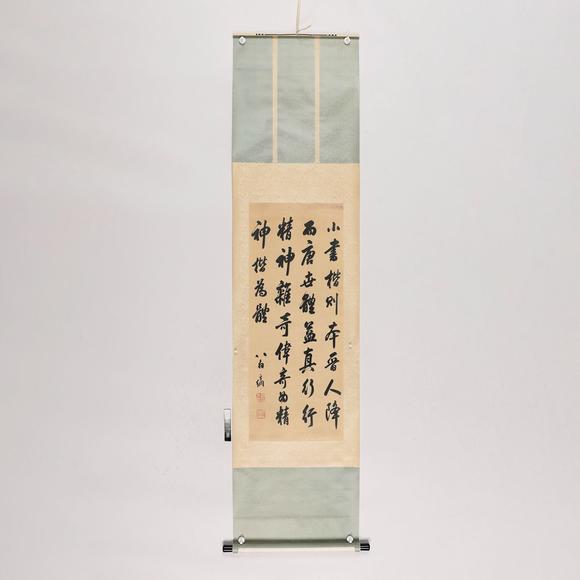 小書楷則本晉人降
而唐世體益真行行
精神奇偉奇如精
神楷為體